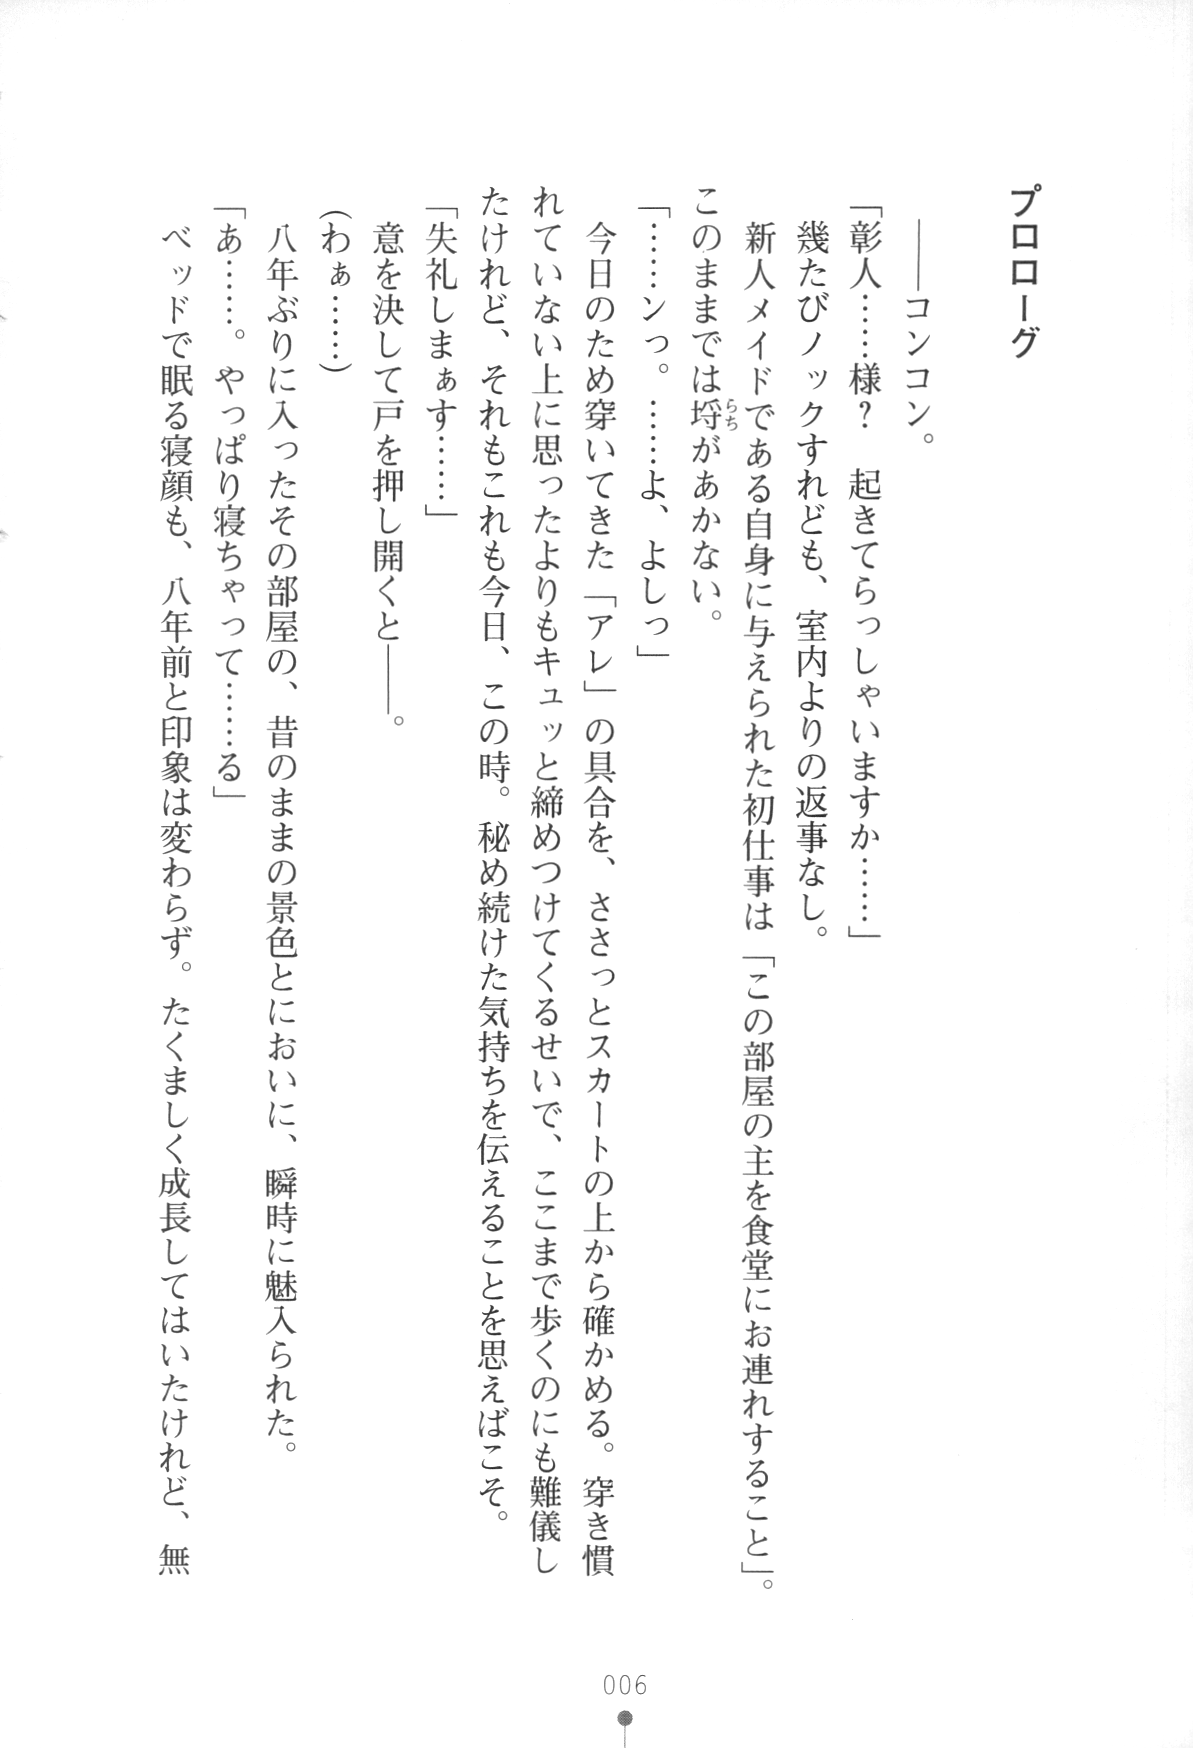 プロローグ
――コンコン。
「彰人……様？　起きてらっしゃいますか……」
幾たびノックすれども、室内よりの返事なし。
新人メイドである自身に与えられた初仕事は「この部屋の主を食堂にお連れすること」。
このままでは埒があかない。
らち
「……ンっ。……よ、よしっ」
今日のため穿いてきた「アレ」の具合を、ささっとスカートの上から確かめる。穿き慣
れていない上に思ったよりもキュッと締めつけてくるせいで、ここまで歩くのにも難儀し
たけれど、それもこれも今日、この時。秘め続けた気持ちを伝えることを思えばこそ。
「失礼しまぁす……」
意を決して戸を押し開くと――。
（わぁ……）
八年ぶりに入ったその部屋の、昔のままの景色とにおいに、瞬時に魅入られた。
「あ……。やっぱり寝ちゃって……る」
ベッドで眠る寝顔も、八年前と印象は変わらず。たくましく成長してはいたけれど、無
006